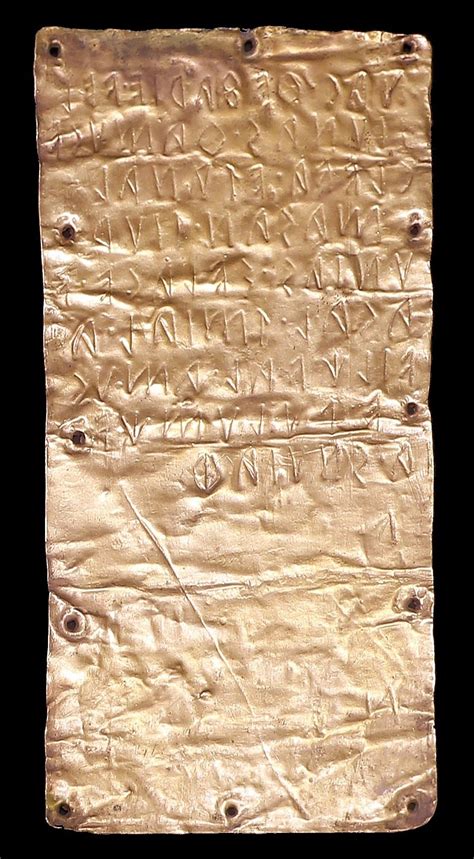 𐌍𐌀𐌂·𐌈𐌄𐌚𐌀𐌓𐌉𐌄·𐌅𐌄
𐌋𐌉𐌉𐌖𐌍𐌀𐌔·𐌈𐌀𐌌𐌖𐌂𐌄
𐌂𐌋𐌄𐌅𐌀·𐌄𐌕𐌀𐌍𐌀𐌋
𐌌𐌀𐌔𐌀𐌍·𐌕𐌉𐌖𐌓
𐌖𐌍𐌉𐌀𐌔·𐌔𐌄𐌋𐌀𐌂𐌄·𐌅
𐌀𐌂𐌀𐌋·𐌕𐌌𐌉𐌀𐌋·𐌀
𐌅𐌉𐌋𐌗𐌅𐌀𐌋·𐌀𐌌𐌖𐌂
𐌄·𐌐𐌖𐌋𐌖𐌌𐌗𐌅
𐌀·𐌔𐌍𐌖𐌉𐌀𐌘